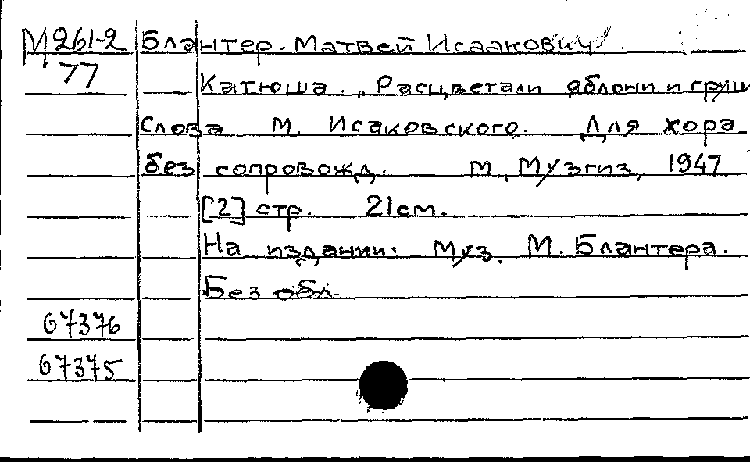 М 261-2 Блантер. Матвей Исаакович
77
Катюша. „Расцветали яблони и груши
Слова М. Исаковского. Для хора
без сопровожд. М, Музгиз, 1947
[2] стр. 21см.
На издании: муз. М. Блантера.
Без обл.
67376
67375